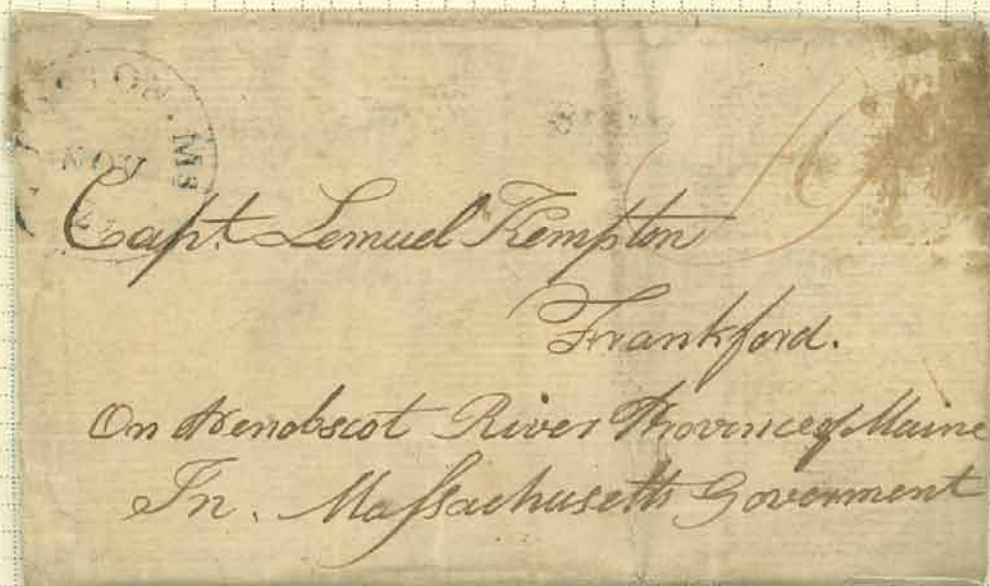 NOV
Capt. Lemuel Kempton
Frankford.
On Penobscot River Province of Maine
In. Massachusetts Goverment